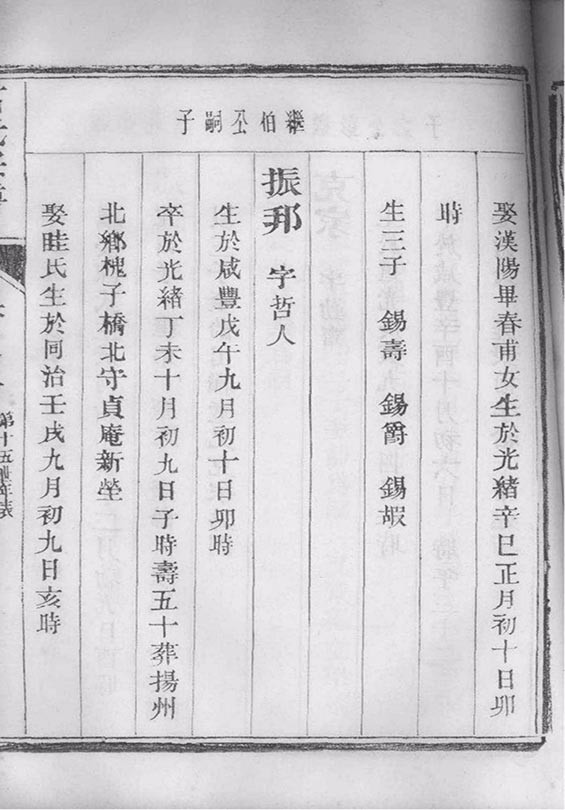 伯公嗣子
娶漢陽畢春甫女生於光緒辛巳正月初十日卯
時
生三子 錫壽 錫爵 錫嘏
振邦 字哲人
生於咸豐戊午九月初十日卯時
卒於光緒丁未十月初九日子時壽五十葬揚州
北鄉槐子橋北守貞庵新塋
娶眭氏生於同治壬戌九月初九日亥時
第十五世年表